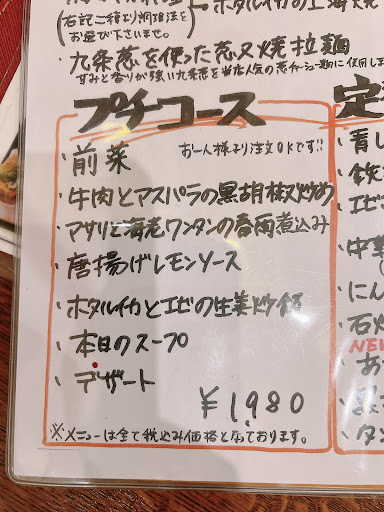 右記ご指より調理法を
お選び下さいませ。
九条葱を使った葱叉焼拉麺
甘みと香りが強い九条葱を当店人気の葱チャーシュー麺に使用しま
プチコース
定
・前菜 お一人様より注文OKです!!
・牛肉とアスパラの黒胡椒炒め
・アサリと海老ワンタンの春雨煮込み
・唐揚げレモンソース
・ホタルイカとエビの生姜炒飯
・本日のスープ
・デザート
¥1,980
※メニューは全て税込み価格となっております。
・青し
・飲
・エビ
・中華
・にん
・石焼
NEW
あ
・タン